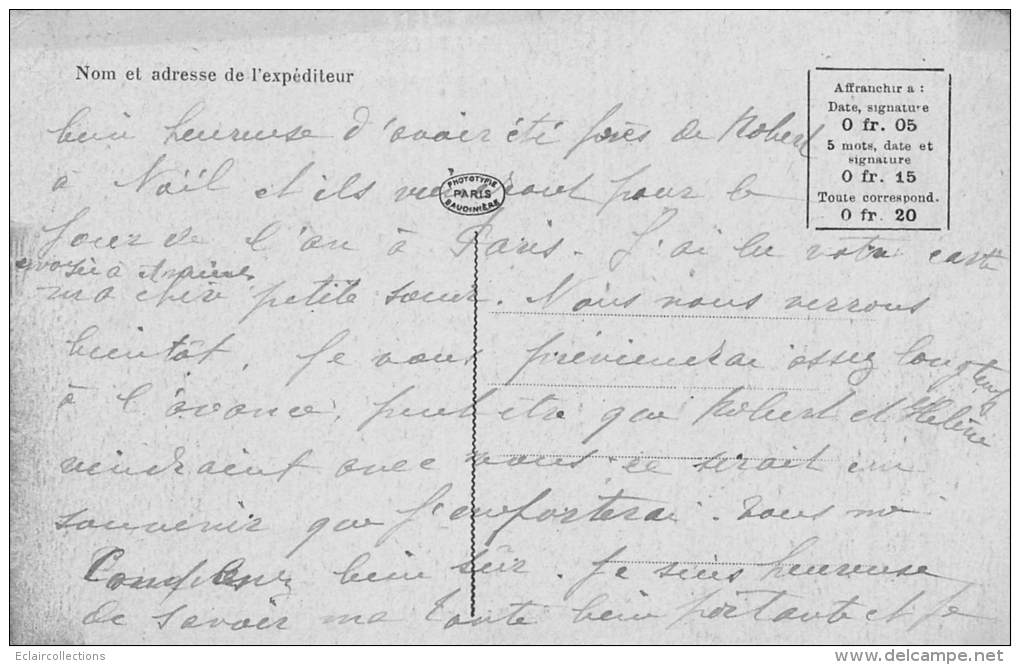 Nom et adresse de l'expéditeur
Affranchir a :
Date, signature
0 fr. 05
5 mots, date et
signature
0 fr. 15
Toute correspond.
0 fr. 20
PHOTOTYPIE
PARIS
BAUDINIÈRE
bien heureuse d'avoir été près de Robert
à Noël et ils viendront pour le
jour de l'an à Paris. J'ai lu votre carte
envoyée à
ma chère petite sœur. Nous nous verrons
bientôt. Je vous préviendrai assez longtemps
à l'avance, peut être que Robert et Hélène
viendraient avec vous ce serait un
souvenir que j'emporterai. Vous me
comprenez bien sûr. Je suis heureuse
de savoir ma tante bien portante et je
Eclaircollections
delcampe.net